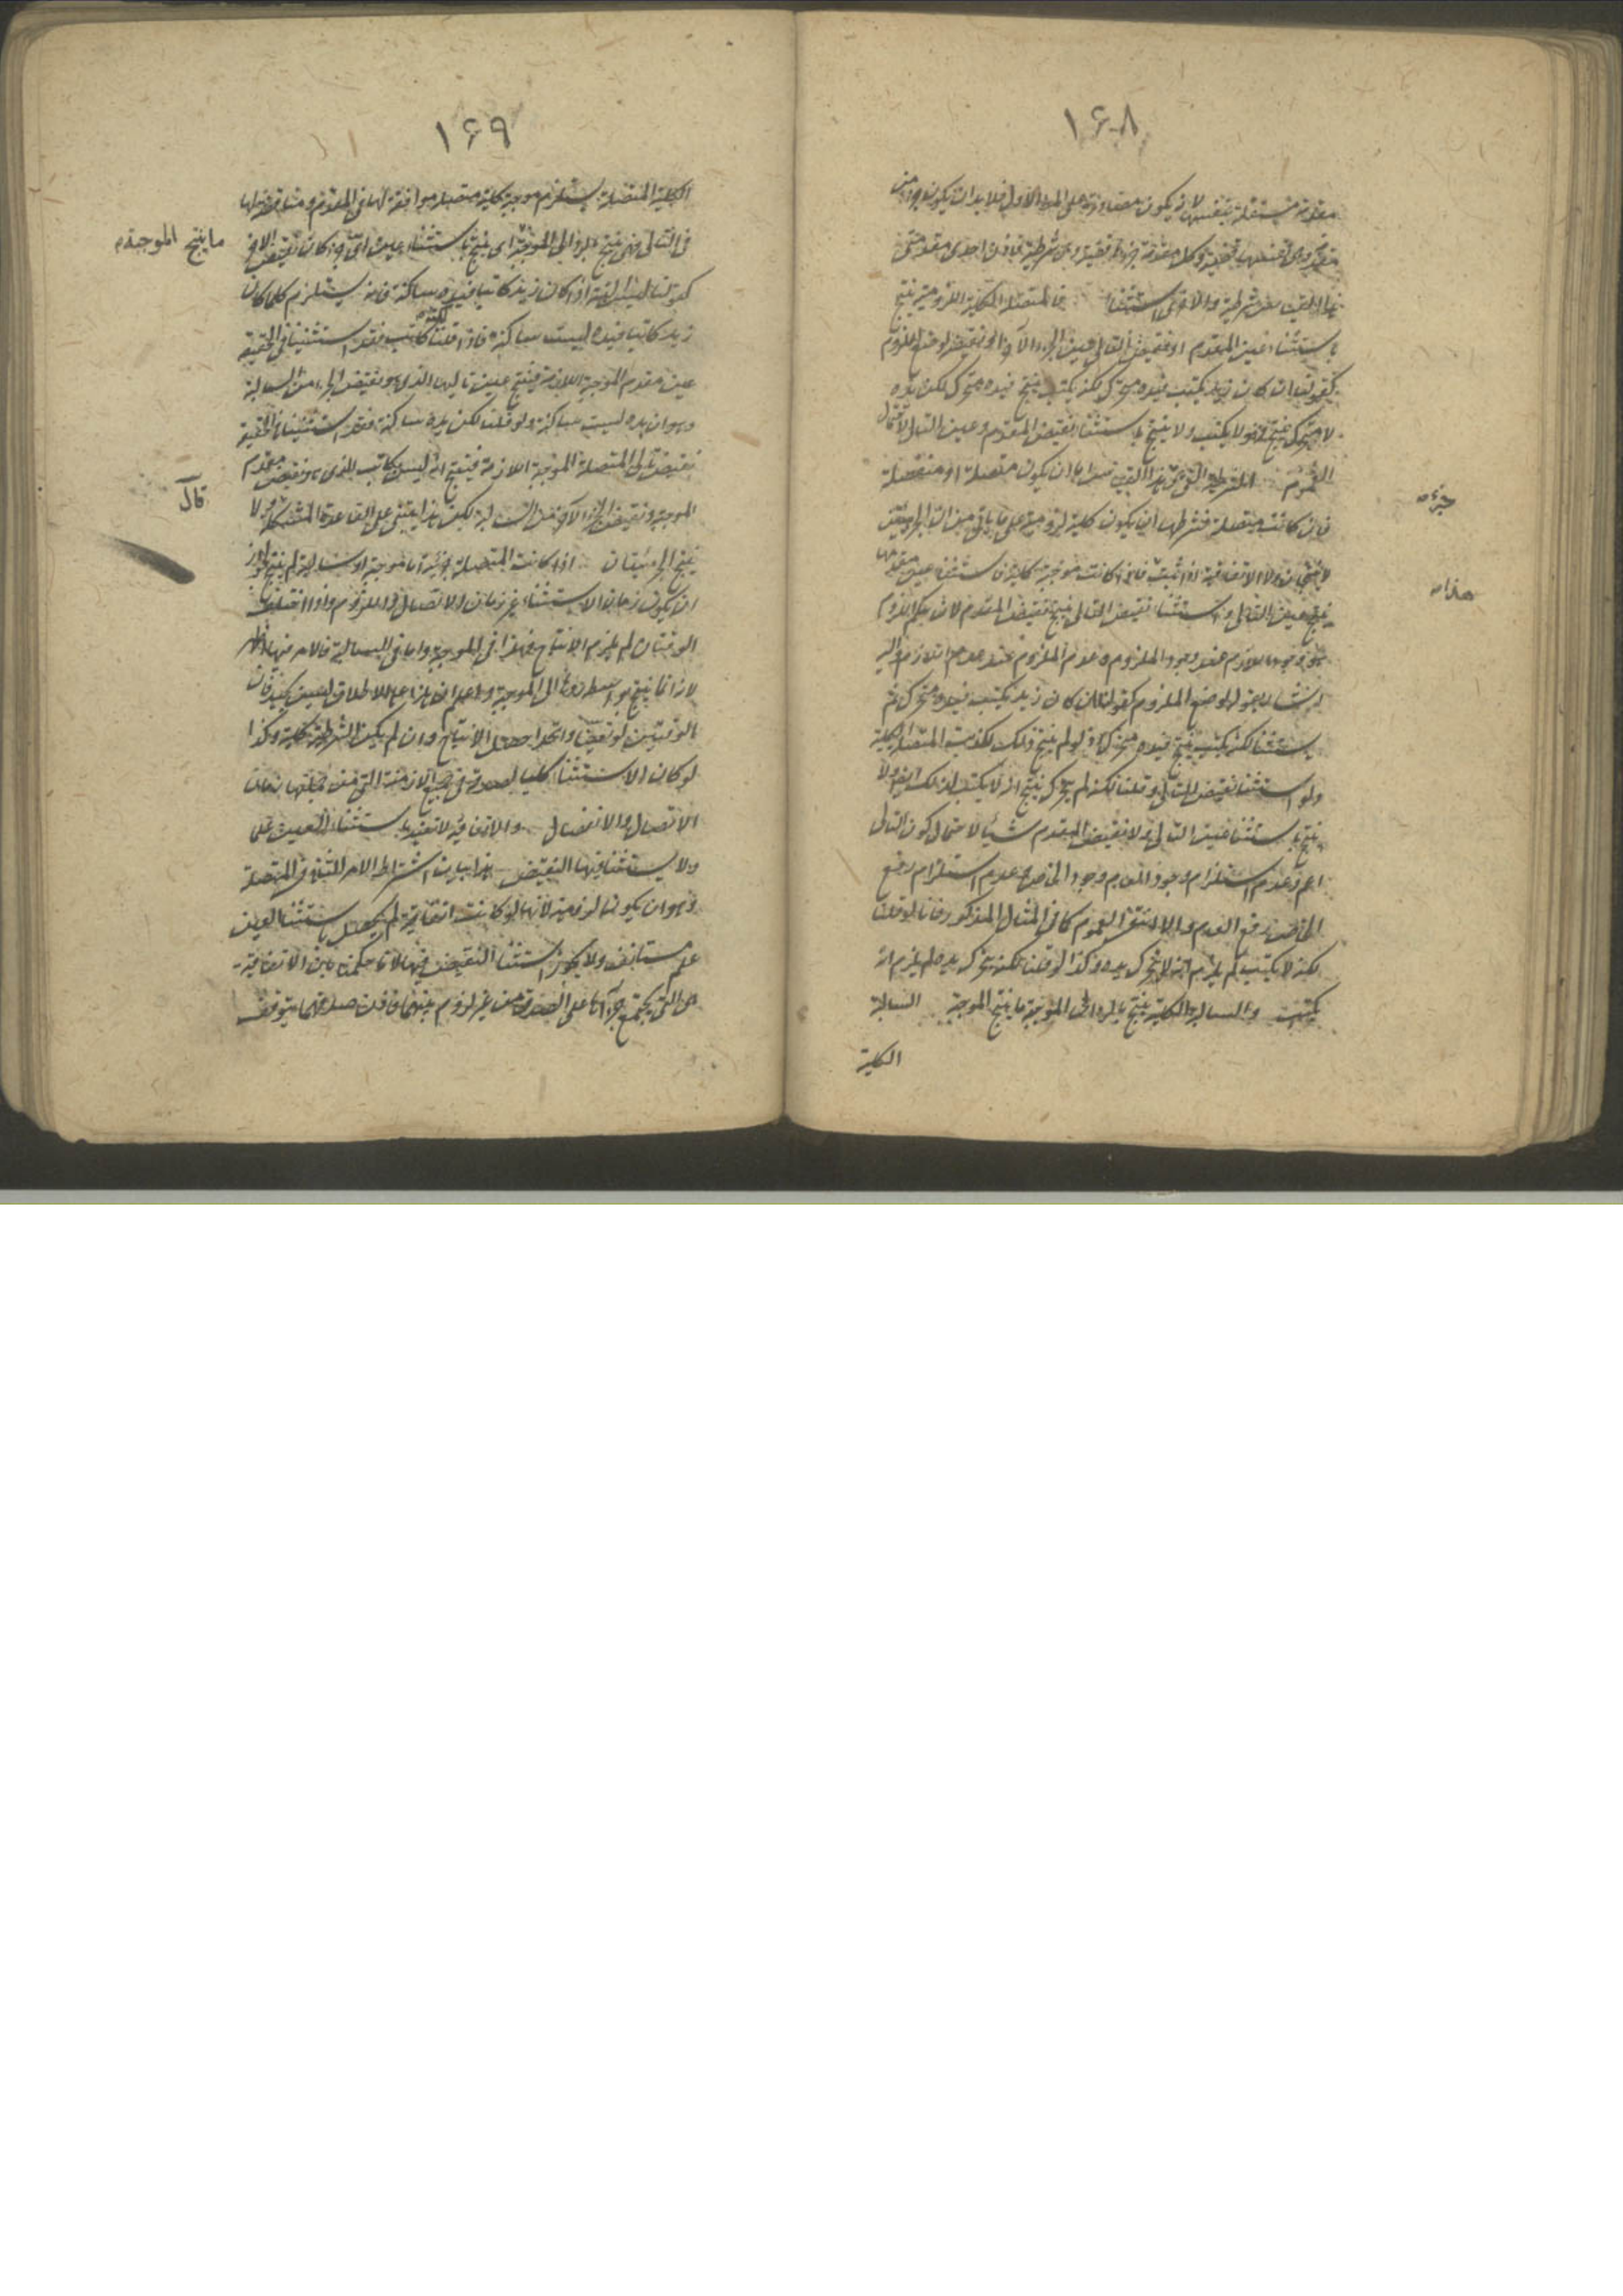 ١٦٨
مقدمة مستقلة بنفسها لا يكون مصادرة على المط الاول فلا بد ان يكون جزء من
مقدمة وهي قضية وكل مقدمة جزؤها قضية وهي شرطية فاذن احدى مقدمتي
هذا القياس شرطية والاخرى استثناء فالمتصلة الكلية اللزومية ينتج
باستثناء عين المقدم او نقيض التالي عين الجزء الآخر او نقيضه لوضع الملزوم
كقولنا ان كان زيد يكتب فيده متحرك لكنه يكتب ينتج فيده متحرك لكن يده
لا متحرك ينتج فهو لا يكتب ولا ينتج باستثناء نقيض المقدم وعين التالي لاحتمال
العموم الشرطية التي في هذا القياس اما ان يكون متصلة او منفصلة
جزءه
فان كانت متصلة فشرطها ان يكون كلية لزومية على ما ياتي من ان الجزئيتين
لا ينتجان ولا الاتفاقية اذا ثبت فاذا كانت موجبة كلية فاستثناء عين مقدمها
هذا
ينتج عين التالي واستثناء نقيض التالي ينتج نقيض المقدم لان حكم اللزوم
هو وجود اللازم عند وجود الملزوم وعدم الملزوم عند عدم اللازم واليه
اشار بقوله لوضع الملزوم كقولنا ان كان زيد يكتب فيده متحرك ثم
يستثنى لكنه يكتب ينتج فيده متحركة اذ لو لم ينتج ذلك لكذبت المتصلة الكلية
ولو استثنى نقيض التالي وقلنا لكنه لم يتحرك ينتج انه لا يكتب لذلك ايضا ولا
ينتج باستثناء عين التالي ولا نقيض المقدم شيئا لاحتمال كون التالي
اعم وعدم استلزام وجود العام وجود الخاص وعدم استلزام رفع
الخاص رفع العام والا انتفى العموم كما في المثال المذكور فانا لو قلنا
لكنه لا يكتب لم يلزم انه لا يتحرك يده وكذا لو قلنا لكنه يتحرك يده لم يلزم انه
يكتب والسالبة الكلية ينتج بالرد الى الموجبة ما ينتج الموجبة السالبة
الكلية
١٦٩
الكلية المتصلة يستلزم موجبة كلية متصلة موافقة لها في المقدم ومناقضة لها
في التالي فهي ينتج بالرد الى الموجبة اي ينتج باستثناء عين اي جزء كان نقيض الآخر
ما ينتج الموجبة
كقولنا ليس البتة اذا كان زيد كاتبا فيده ساكنة فانه يستلزم كلما كان
زيد كاتبا فيده ليست ساكنة فاذا قلنا لكنه كاتب فقد استثنينا في الحقيقة
عين مقدم الموجبة اللازمة فينتج عين تاليها الذي هو نقيض الجزء من السالبة
وهو ان يده ليست ساكنة ولو قلنا لكن يده ساكنة فقد استثنينا في الحقيقة
نقيض تالي المتصلة الموجبة اللازمة فينتج انه ليس بكاتب الذي هو نقيض مقدم
الموجبة ونقيض الجزء الآخر من السالبة لكن هذا يبتنى على القاعدة المشكلة ولا
قال
ينتج الجزئيتان اذا كانت المتصلة جزئية اما موجبة او سالبة لم ينتج لجواز
ان يكون زمان الاستثناء غير زمان الاتصال واللزوم واذا اختلف
الوقتان لم يلزم الانتاج هذا في الموجبة واما في السالبة فالامر فيها اظهر
لانها انما ينتج بواسطة ردها الى الموجبة واعلم ان هذا على الاطلاق ليس بجيد فان
الوقتين لو تعينا واتحدا حصل الانتاج وان لم يكن الشرطية كلية وكذا
لو كان الاستثناء كليا لصدقه في جميع الازمنة التي من جملتها زمان
الاتصال والانفصال والاتفاقية لا تفيد باستثناء العين علما
ولا يستثنى فيها النقيض هذا بيان اشتراط الامر الثاني في المتصلة
وهو ان يكون لزومية لانها لو كانت اتفاقية لم يحصل باستثناء العين
علم مستانف ولا يجوز استثناء النقيض فيها لانا حكمنا بان الاتفاقية
هي التي يجتمع جزءاها على الصدق من غير لزوم بينهما فاذن صدقهما يتوقف